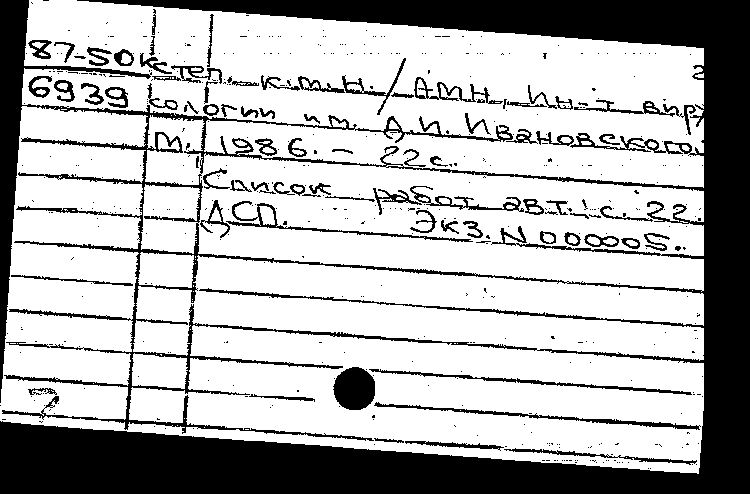 2
87-50к степ. к.м.н. / АМН, Ин-т виру
6939 сологии им. Д.И. Ивановского.
М. 1986. - 22 с.
Список работ авт.: с. 22.
ДСП. Экз. N 000005.